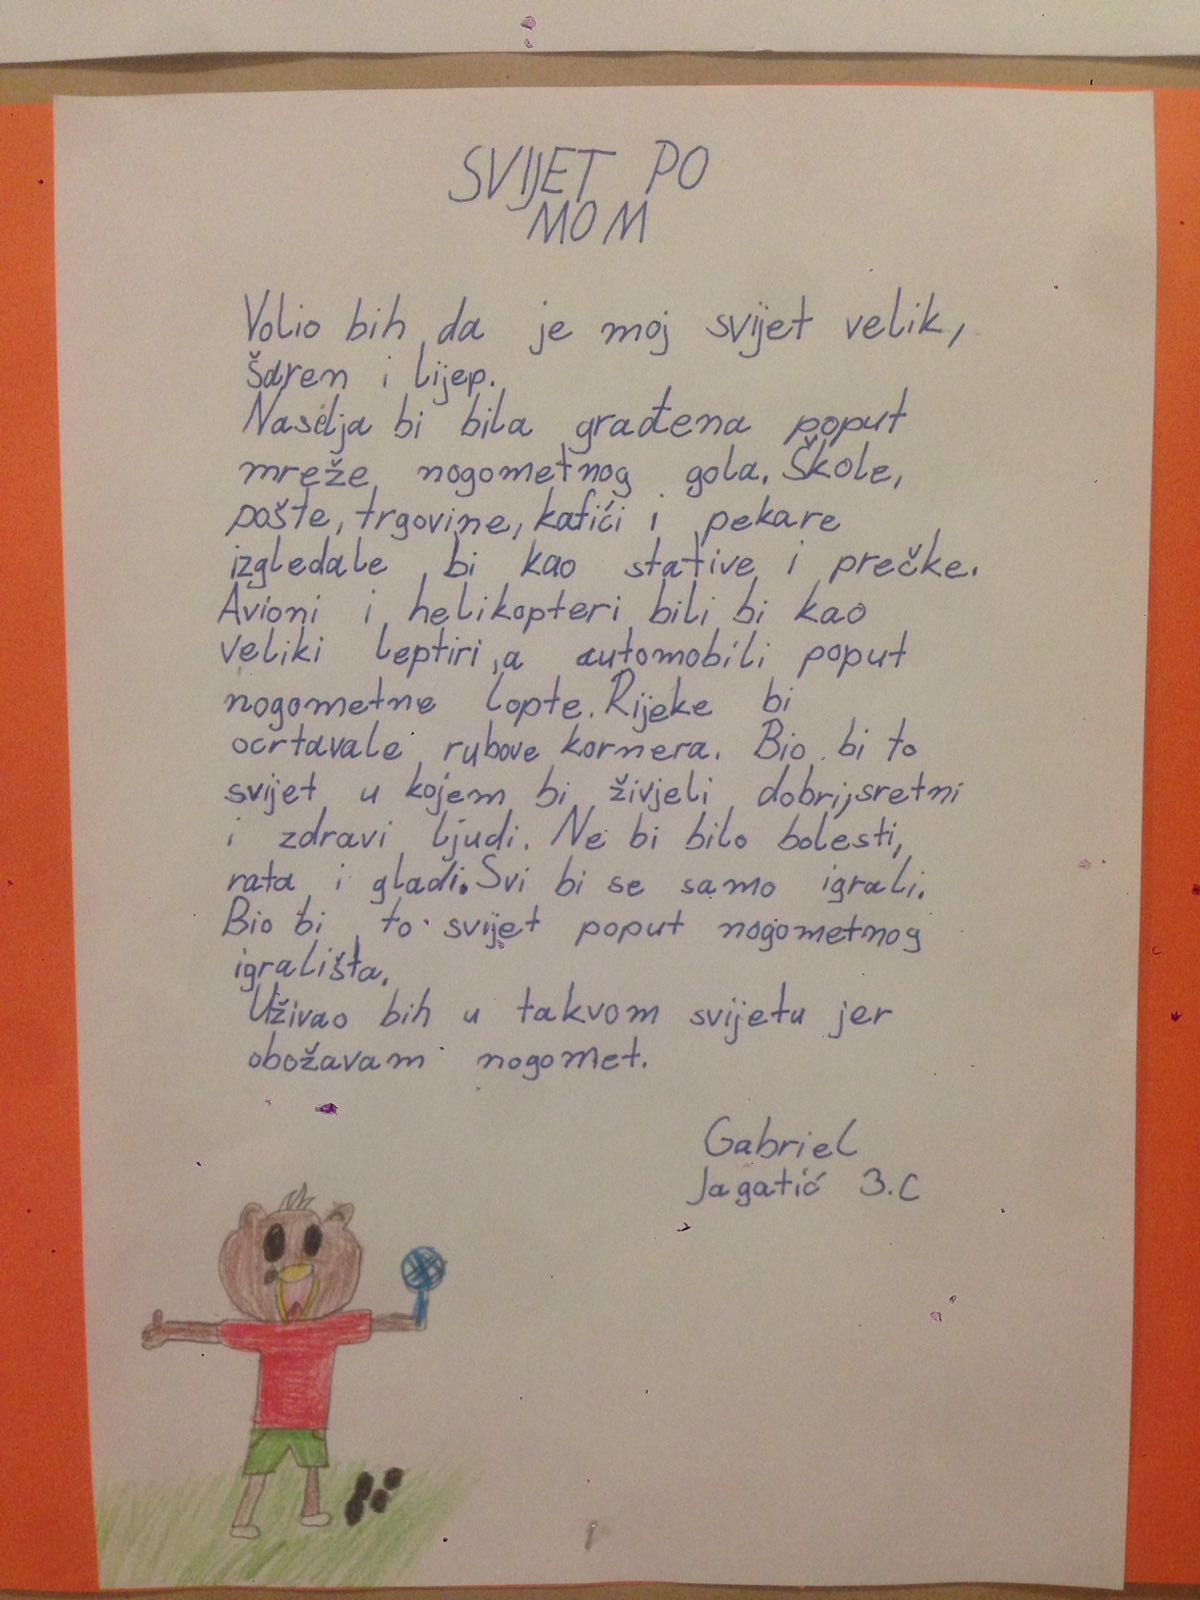 SVIJET PO
MOM
Volio bih da je moj svijet velik,
šaren i lijep.
Naselja bi bila građena poput
mreže nogometnog gola. Škole,
pošte, trgovine, kafići i pekare
izgledale bi kao stative i prečke.
Avioni i helikopteri bili bi kao
veliki leptiri, a automobili poput
nogometne lopte. Rijeke bi
ocrtavale rubove kornera. Bio bi to
svijet u kojem bi živjeli dobri, sretni
i zdravi ljudi. Ne bi bilo bolesti,
rata i gladi. Svi bi se samo igrali.
Bio bi to svijet poput nogometnog
igrališta.
Uživao bih u takvom svijetu jer
obožavam nogomet.
Gabriel
Jagatić 3.C